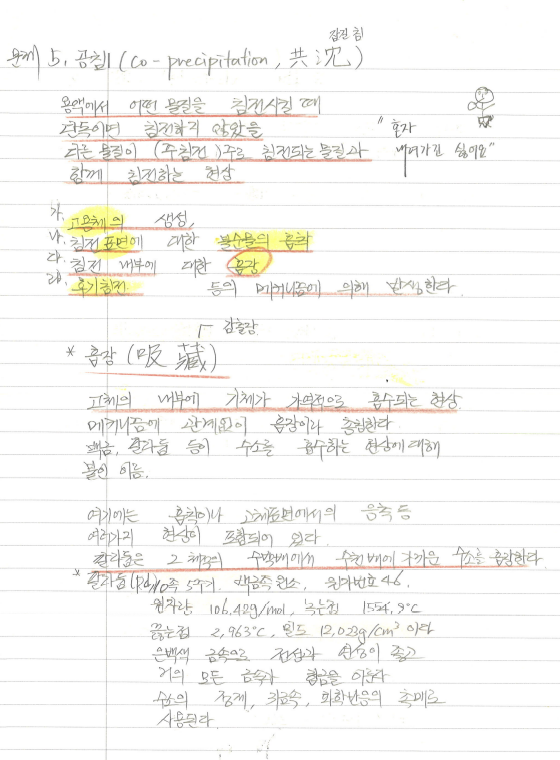 잠길 침
문제) 5. 공침 (co-precipitation, 共沈)
용액에서 어떤 물질을 침전시킬 때
단독이면 침전하지 않았을
다른 물질이 (주침전) 주로 침전되는 물질과
함께 침전하는 현상
"혼자
내려가긴 싫어요"
가. 고용체의 생성,
나. 침전표면에 대한 불순물의 흡착
다. 침전 내부에 대한 흡장
라. 후기침전 등의 메커니즘에 의해 발생한다.
감출장
* 흡장 (吸藏)
고체의 내부에 기체가 가역적으로 흡수되는 현상
메커니즘에 관계없이 흡장이라 총칭한다
백금, 팔라듐 등이 수소를 흡수하는 현상에 대해
붙인 이름.
여기에는 흡착이나 고체표면에서의 응축 등
여러가지 현상이 포함되어 있다.
팔라듐은 그 체적의 수백배에서 수천배에 가까운 수소를 흡장한다.
* 팔라듐(Pd) 10족 5주기 백금족 원소, 원자번호 46.
원자량 106.42g/mol, 녹는점 1554.9°C
끓는점 2,963°C, 밀도 12.023g/cm³ 이다
은백색 금속으로 전성과 연성이 좋고
거의 모든 금속과 합금을 이룬다
수소의 정제, 귀금속, 화학반응의 촉매로
사용된다.